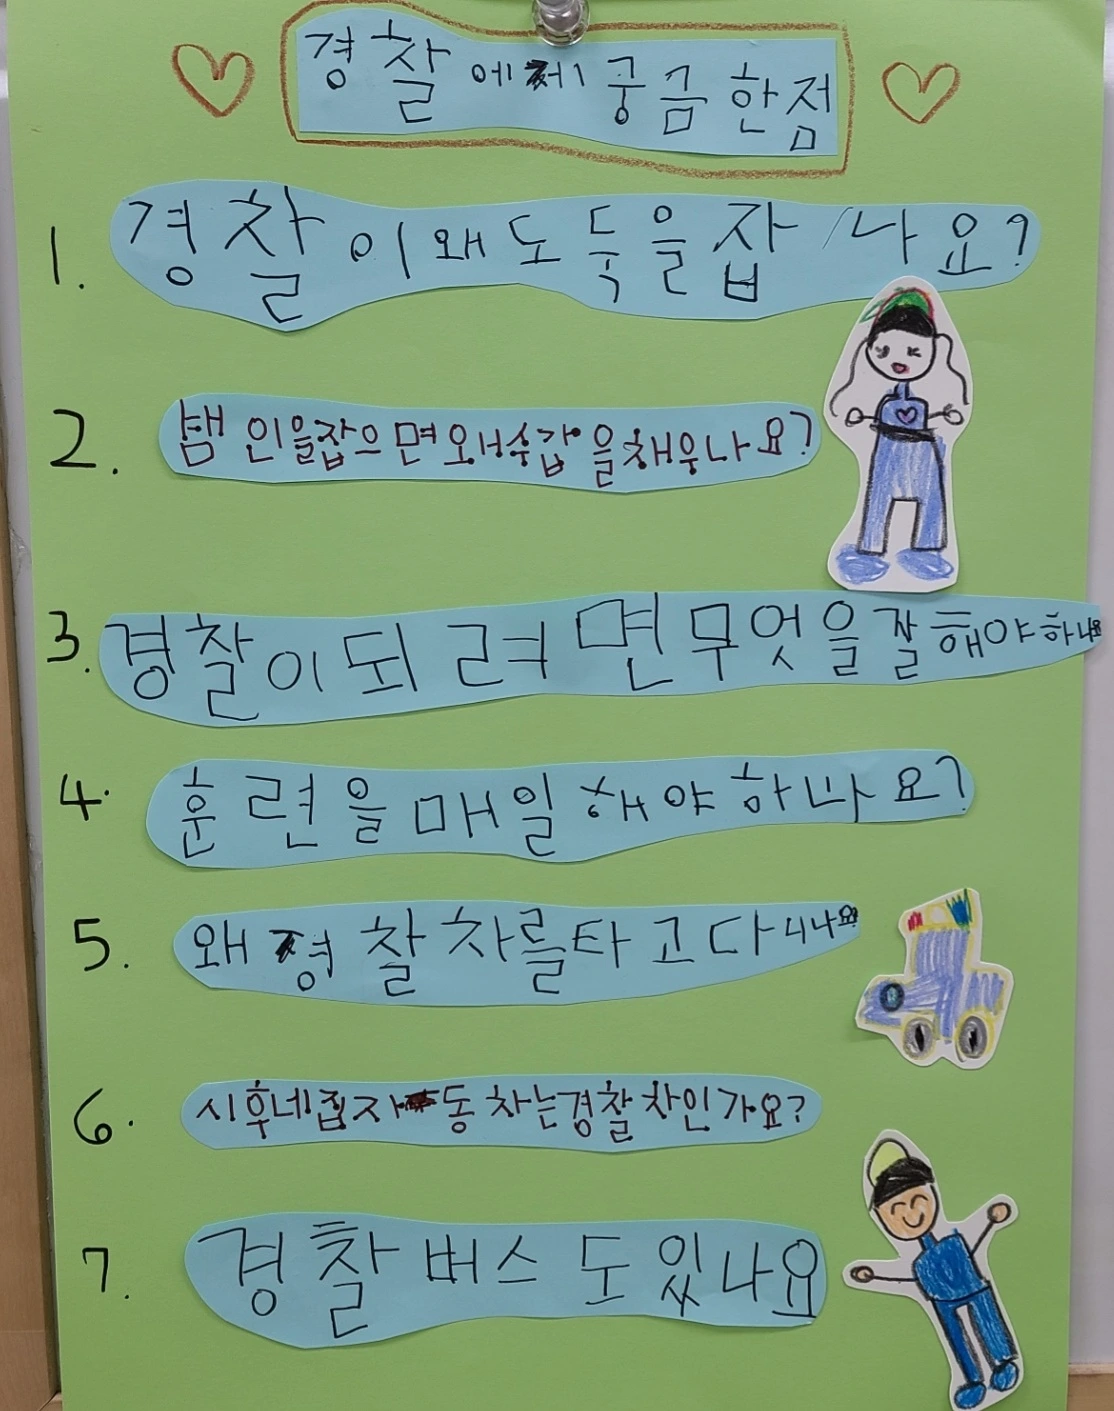 경찰에게 궁금한점
1. 경찰이 왜 도둑을 잡나요?
2. 뱀인을잡으면 오너수갑을채우나요?
3. 경찰이되려면 무엇을 잘해야하나요
4. 훈련을 매일 해야 하나요?
5. 왜 경찰차를타고다니나요?
6. 시후네집자동차는경찰차인가요?
7. 경찰버스도있나요